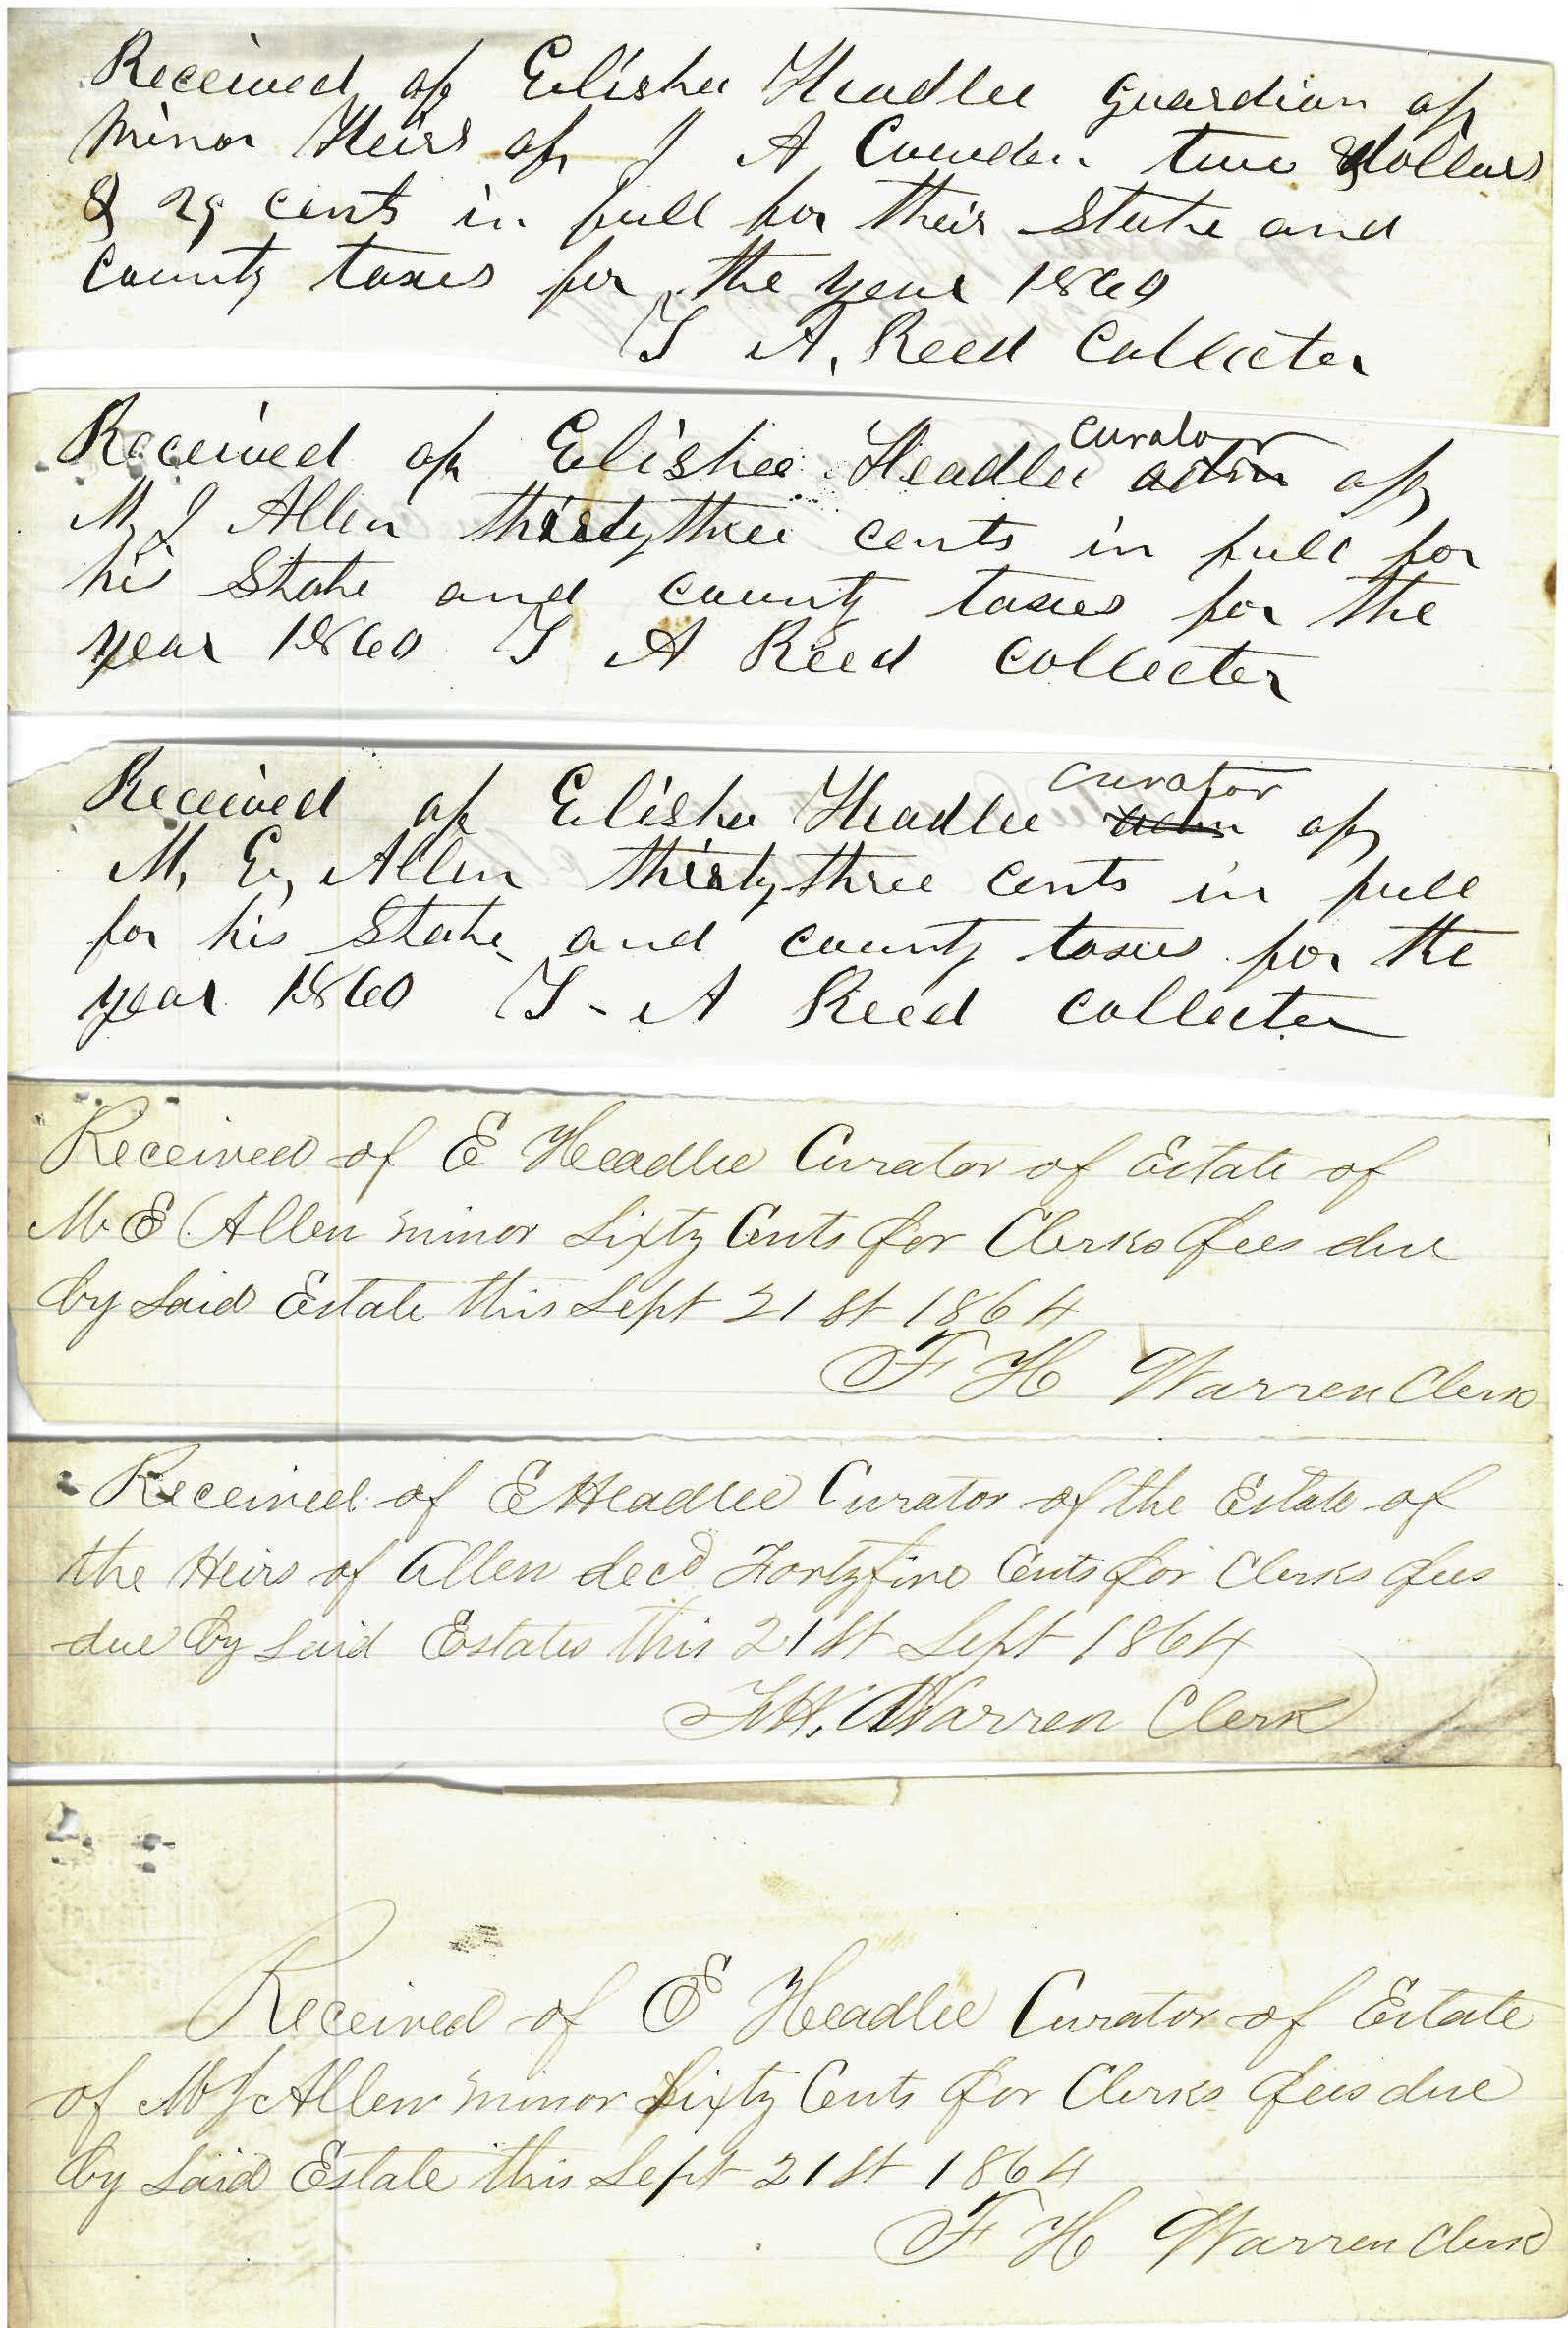 Received of Elisha Headlee guardian of
minor Heirs of J A Cowden two dollars
& 29 cents in full for their State and
County taxes for the year 1860
T A. Reed Collecter
curator
Received of Elisha Headlee admin of
M. J Allen thirtythree cents in full for
his State and county taxes for the
year 1860 T A Reed collecter
curator
Received of Elisha Headlee of
M, E, Allen thirtythree cents in full
for his State and county taxes for the
year 1860 T - A Reed collecter
Received of E Headlee Curator of Estate of
M. E Allen minor Sixty Cents for Clerks fees due
by Said Estate this Sept 21 st 1864
F H Warren Clerk
Received of E Headlee Curator of the Estate of
the Heirs of Allen decd Fortyfive Cents for Clerks fees
due by Said Estates this 21 st Sept 1864
F H. Warren Clerk
Received of E Headlee Curator of Estate
of M J Allen minor Sixty Cents for Clerks fees due
by Said Estate this Sept 21 st 1864
F H Warren Clerk